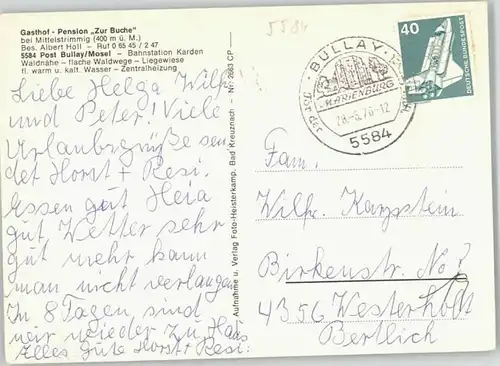 Gasthof - Pension „Zur Buche"
bei Mittelstrimmig (400 m ü. M.)
Bes. Albert Holl - Ruf 0 65 45 / 2 47
5584 Post Bullay/Mosel - Bahnstation Karden
Waldnähe - flache Waldwege - Liegewiese
fl. warm u. kalt. Wasser - Zentralheizung
Liebe Helga Wilfr
und Peter! Viele
Urlaubsgrüße sen
det Horst + Resi.
Essen gut Heia
gut Wetter sehr
gut mehr kann
man nicht verlangen
In 8 Tagen sind
wir wieder zu Haus
Alles Gute Horst + Resi.
Aufnahme u. Verlag Foto-Heisterkamp, Bad Kreuznach - Nr. 2663 CP
5584
BULLAY
MARIENBURG
5584
40
DEUTSCHE BUNDESPOST
Fam.
Wilfr. Karpstein
Birkenstr. No 7
4356 Westerholt
Bertlich